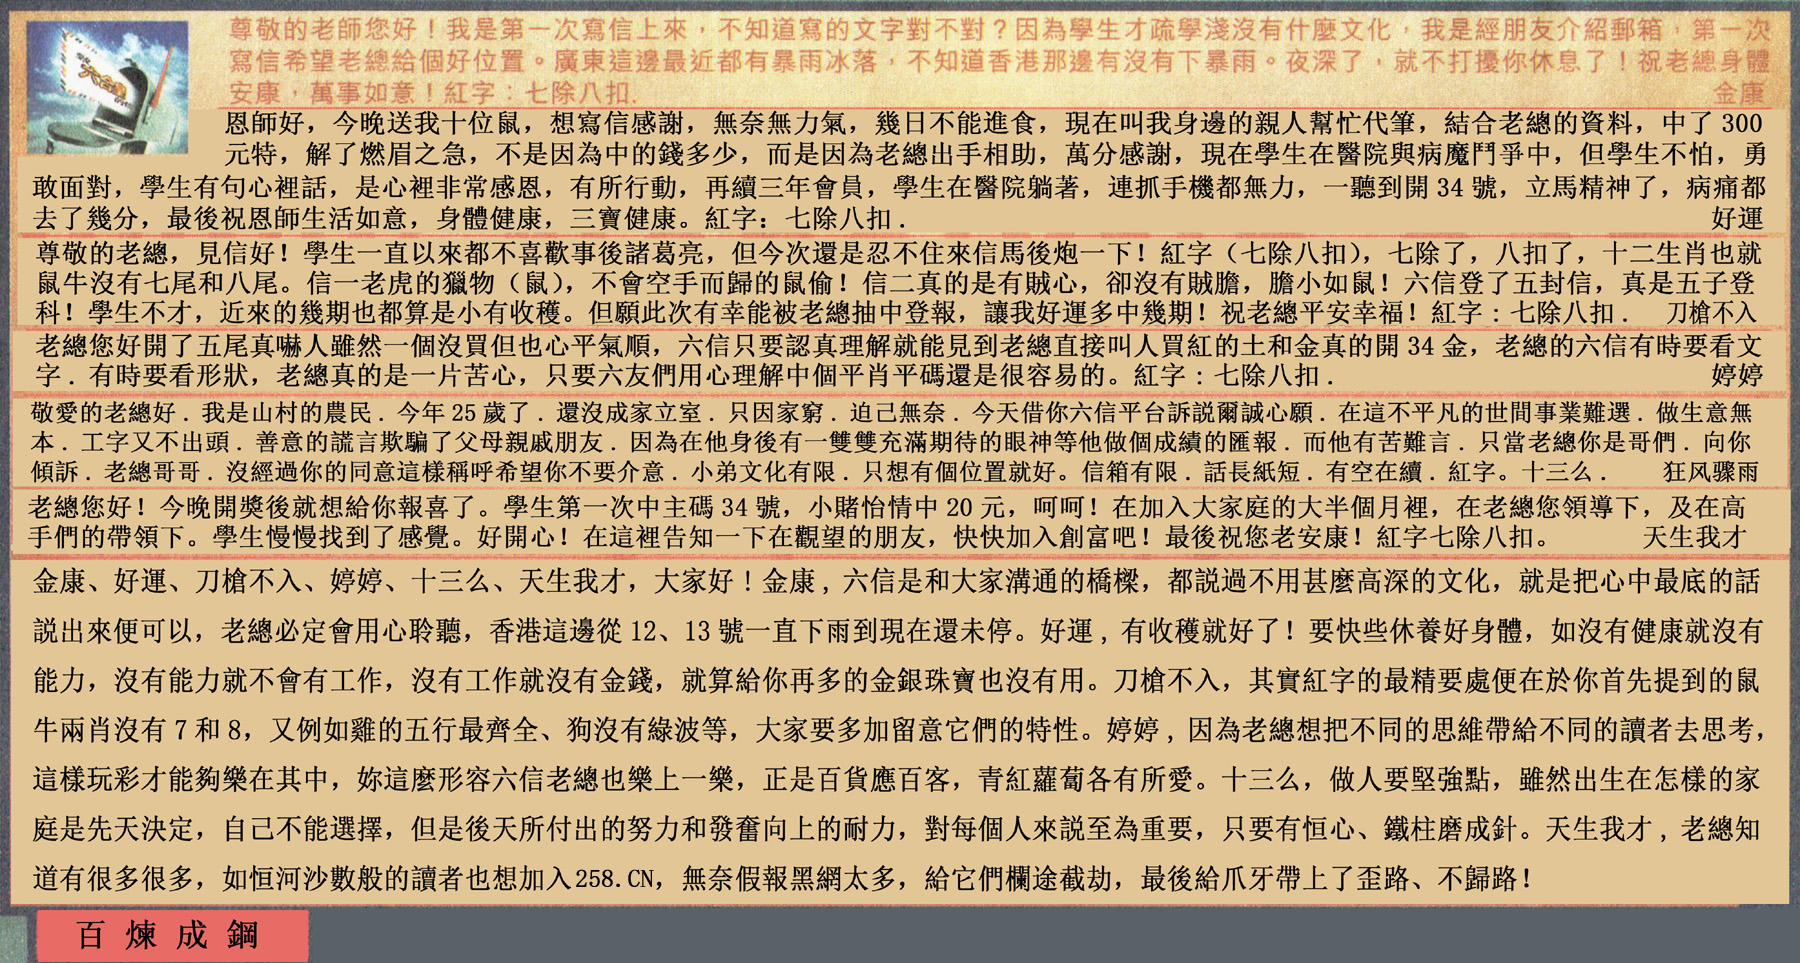 尊敬的老師您好！我是第一次寫信上來，不知道寫的文字對不對？因為學生才疏學淺沒有什麼文化，我是經朋友介紹郵箱，第一次
寫信希望老總給個好位置。廣東這邊最近都有暴雨冰落，不知道香港那邊有沒有下暴雨。夜深了，就不打擾你休息了！祝老總身體
安康，萬事如意！紅字：七除八扣. 金康
恩師好，今晚送我十位鼠，想寫信感謝，無奈無力氣，幾日不能進食，現在叫我身邊的親人幫忙代筆，結合老總的資料，中了 300
元特，解了燃眉之急，不是因為中的錢多少，而是因為老總出手相助，萬分感謝，現在學生在醫院與病魔鬥爭中，但學生不怕，勇
敢面對，學生有句心裡話，是心裡非常感恩，有所行動，再續三年會員，學生在醫院躺著，連抓手機都無力，一聽到開 34 號，立馬精神了，病痛都
去了幾分，最後祝恩師生活如意，身體健康，三寶健康。紅字：七除八扣 . 好運
尊敬的老總，見信好！學生一直以來都不喜歡事後諸葛亮，但今次還是忍不住來信馬後炮一下！紅字（七除八扣），七除了，八扣了，十二生肖也就
鼠牛沒有七尾和八尾。信一老虎的獵物（鼠），不會空手而歸的鼠偷！信二真的是有賊心，卻沒有賊膽，膽小如鼠！六信登了五封信，真是五子登
科！學生不才，近來的幾期也都算是小有收穫。但願此次有幸能被老總抽中登報，讓我好運多中幾期！祝老總平安幸福！紅字：七除八扣 . 刀槍不入
老總您好開了五尾真嚇人雖然一個沒買但也心平氣順，六信只要認真理解就能見到老總直接叫人買紅的土和金真的開 34 金，老總的六信有時要看文
字 . 有時要看形狀，老總真的是一片苦心，只要六友們用心理解中個平肖平碼還是很容易的。紅字：七除八扣 . 婷婷
敬愛的老總好 . 我是山村的農民 . 今年 25 歲了 . 還沒成家立室 . 只因家窮 . 迫己無奈 . 今天借你六信平台訴説爾誠心願 . 在這不平凡的世間事業難選 . 做生意無
本 . 工字又不出頭 . 善意的謊言欺騙了父母親戚朋友 . 因為在他身後有一雙雙充滿期待的眼神等他做個成績的匯報 . 而他有苦難言 . 只當老總你是哥們 . 向你
傾訴 . 老總哥哥 . 沒經過你的同意這樣稱呼希望你不要介意 . 小弟文化有限 . 只想有個位置就好。信箱有限 . 話長紙短 . 有空在續 . 紅字。十三么 . 狂风骤雨
老總您好！今晚開獎後就想給你報喜了。學生第一次中主碼 34 號，小賭怡情中 20 元，呵呵！在加入大家庭的大半個月裡，在老總您領導下，及在高
手們的帶領下。學生慢慢找到了感覺。好開心！在這裡告知一下在觀望的朋友，快快加入創富吧！最後祝您老安康！紅字七除八扣。 天生我才
金康、好運、刀槍不入、婷婷、十三么、天生我才，大家好！金康，六信是和大家溝通的橋樑，都説過不用甚麼高深的文化，就是把心中最底的話
説出來便可以，老總必定會用心聆聽，香港這邊從 12、13 號一直下雨到現在還未停。好運，有收穫就好了！要快些休養好身體，如沒有健康就沒有
能力，沒有能力就不會有工作，沒有工作就沒有金錢，就算給你再多的金銀珠寶也沒有用。刀槍不入，其實紅字的最精要處便在於你首先提到的鼠
牛兩肖沒有 7 和 8，又例如雞的五行最齊全、狗沒有綠波等，大家要多加留意它們的特性。婷婷，因為老總想把不同的思維帶給不同的讀者去思考，
這樣玩彩才能夠樂在其中，妳這麼形容六信老總也樂上一樂，正是百貨應百客，青紅蘿蔔各有所愛。十三么，做人要堅強點，雖然出生在怎樣的家
庭是先天決定，自己不能選擇，但是後天所付出的努力和發奮向上的耐力，對每個人來説至為重要，只要有恒心、鐵柱磨成針。天生我才，老總知
道有很多很多，如恒河沙數般的讀者也想加入258.CN，無奈假報黑網太多，給它們攔途截劫，最後給爪牙帶上了歪路、不歸路！
百煉成鋼